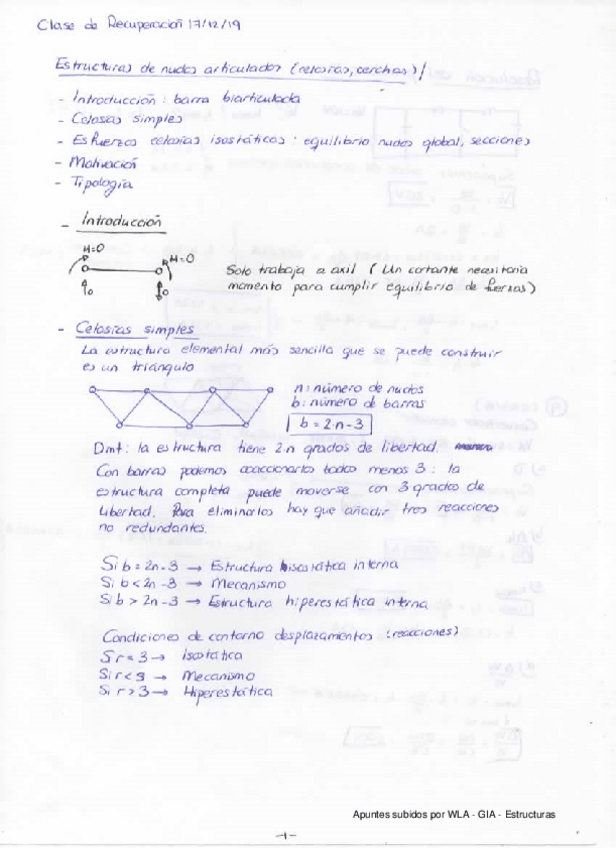 Clase de Recuperación 17/12/19
Estructuras de nudos articulados (celosías, cerchas)/
- Introducción : barra biarticulada
- Celosías simples
- Esfuerzos celosías isostáticas : equilibrio nudos global, secciones
- Motivación
- Tipología
- Introducción
M=0
M=0
Solo trabaja a axil (Un cortante necesitaria
momento para cumplir equilibrio de fuerzas)
0
0
- Celosías simples
La estructura elemental más sencilla que se puede construir
es un triángulo
n: número de nudos
b: número de barras
b = 2·n - 3
Dmt: la estructura tiene 2·n grados de libertad.
Con barras podemos coaccionarlos todos menos 3 : la
estructura completa puede moverse con 3 grados de
libertad. Para eliminarlos hay que añadir tres reacciones
no redundantes.
Si b = 2n - 3 → Estructura isostática interna
Si b < 2n - 3 → Mecanismo
Si b > 2n - 3 → Estructura hiperestática interna
Condiciones de contorno desplazamientos (reacciones)
Si r = 3 → Isostática
Si r < 3 → Mecanismo
Si r > 3 → Hiperestática
Apuntes subidos por WLA - GIA - Estructuras
-1-